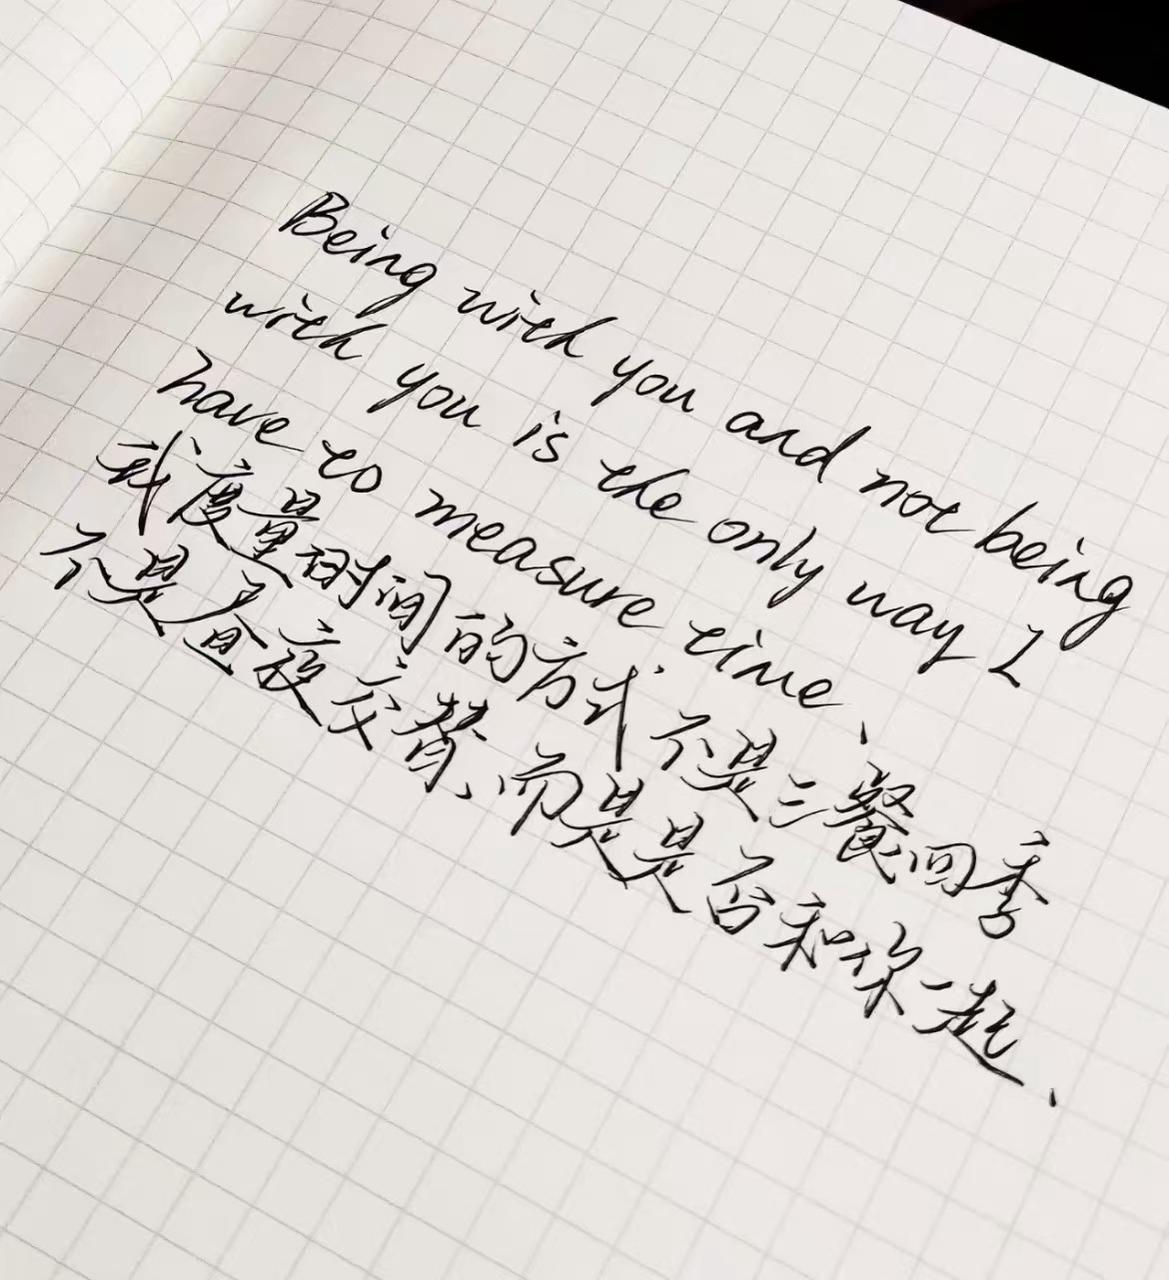 Being with you and not being
with you is the only way I
have to measure time、
我度量时间的方式不是三餐四季
不是昼夜交替、而是是否和你一起、